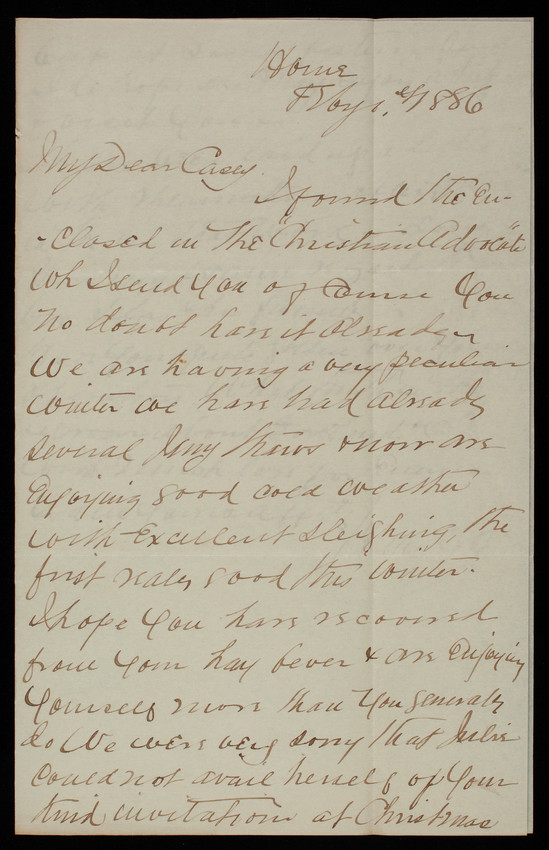 Home
Feby 1, 1886
My Dear Casey.
I found the en-
-closed in the "Christian Advocate"
wh I send you of course you
no doubt have it already
We are having a very peculiar
winter we have had already
several Jany thaws & now are
Enjoying good cold weather
with Excellent sleighing, the
first really good this winter.
I hope you have recovered
from your hay fever & are Enjoying
yourself more than you generally
do We were very sorry that
could not avail herself of your
kind invitation at Christmas